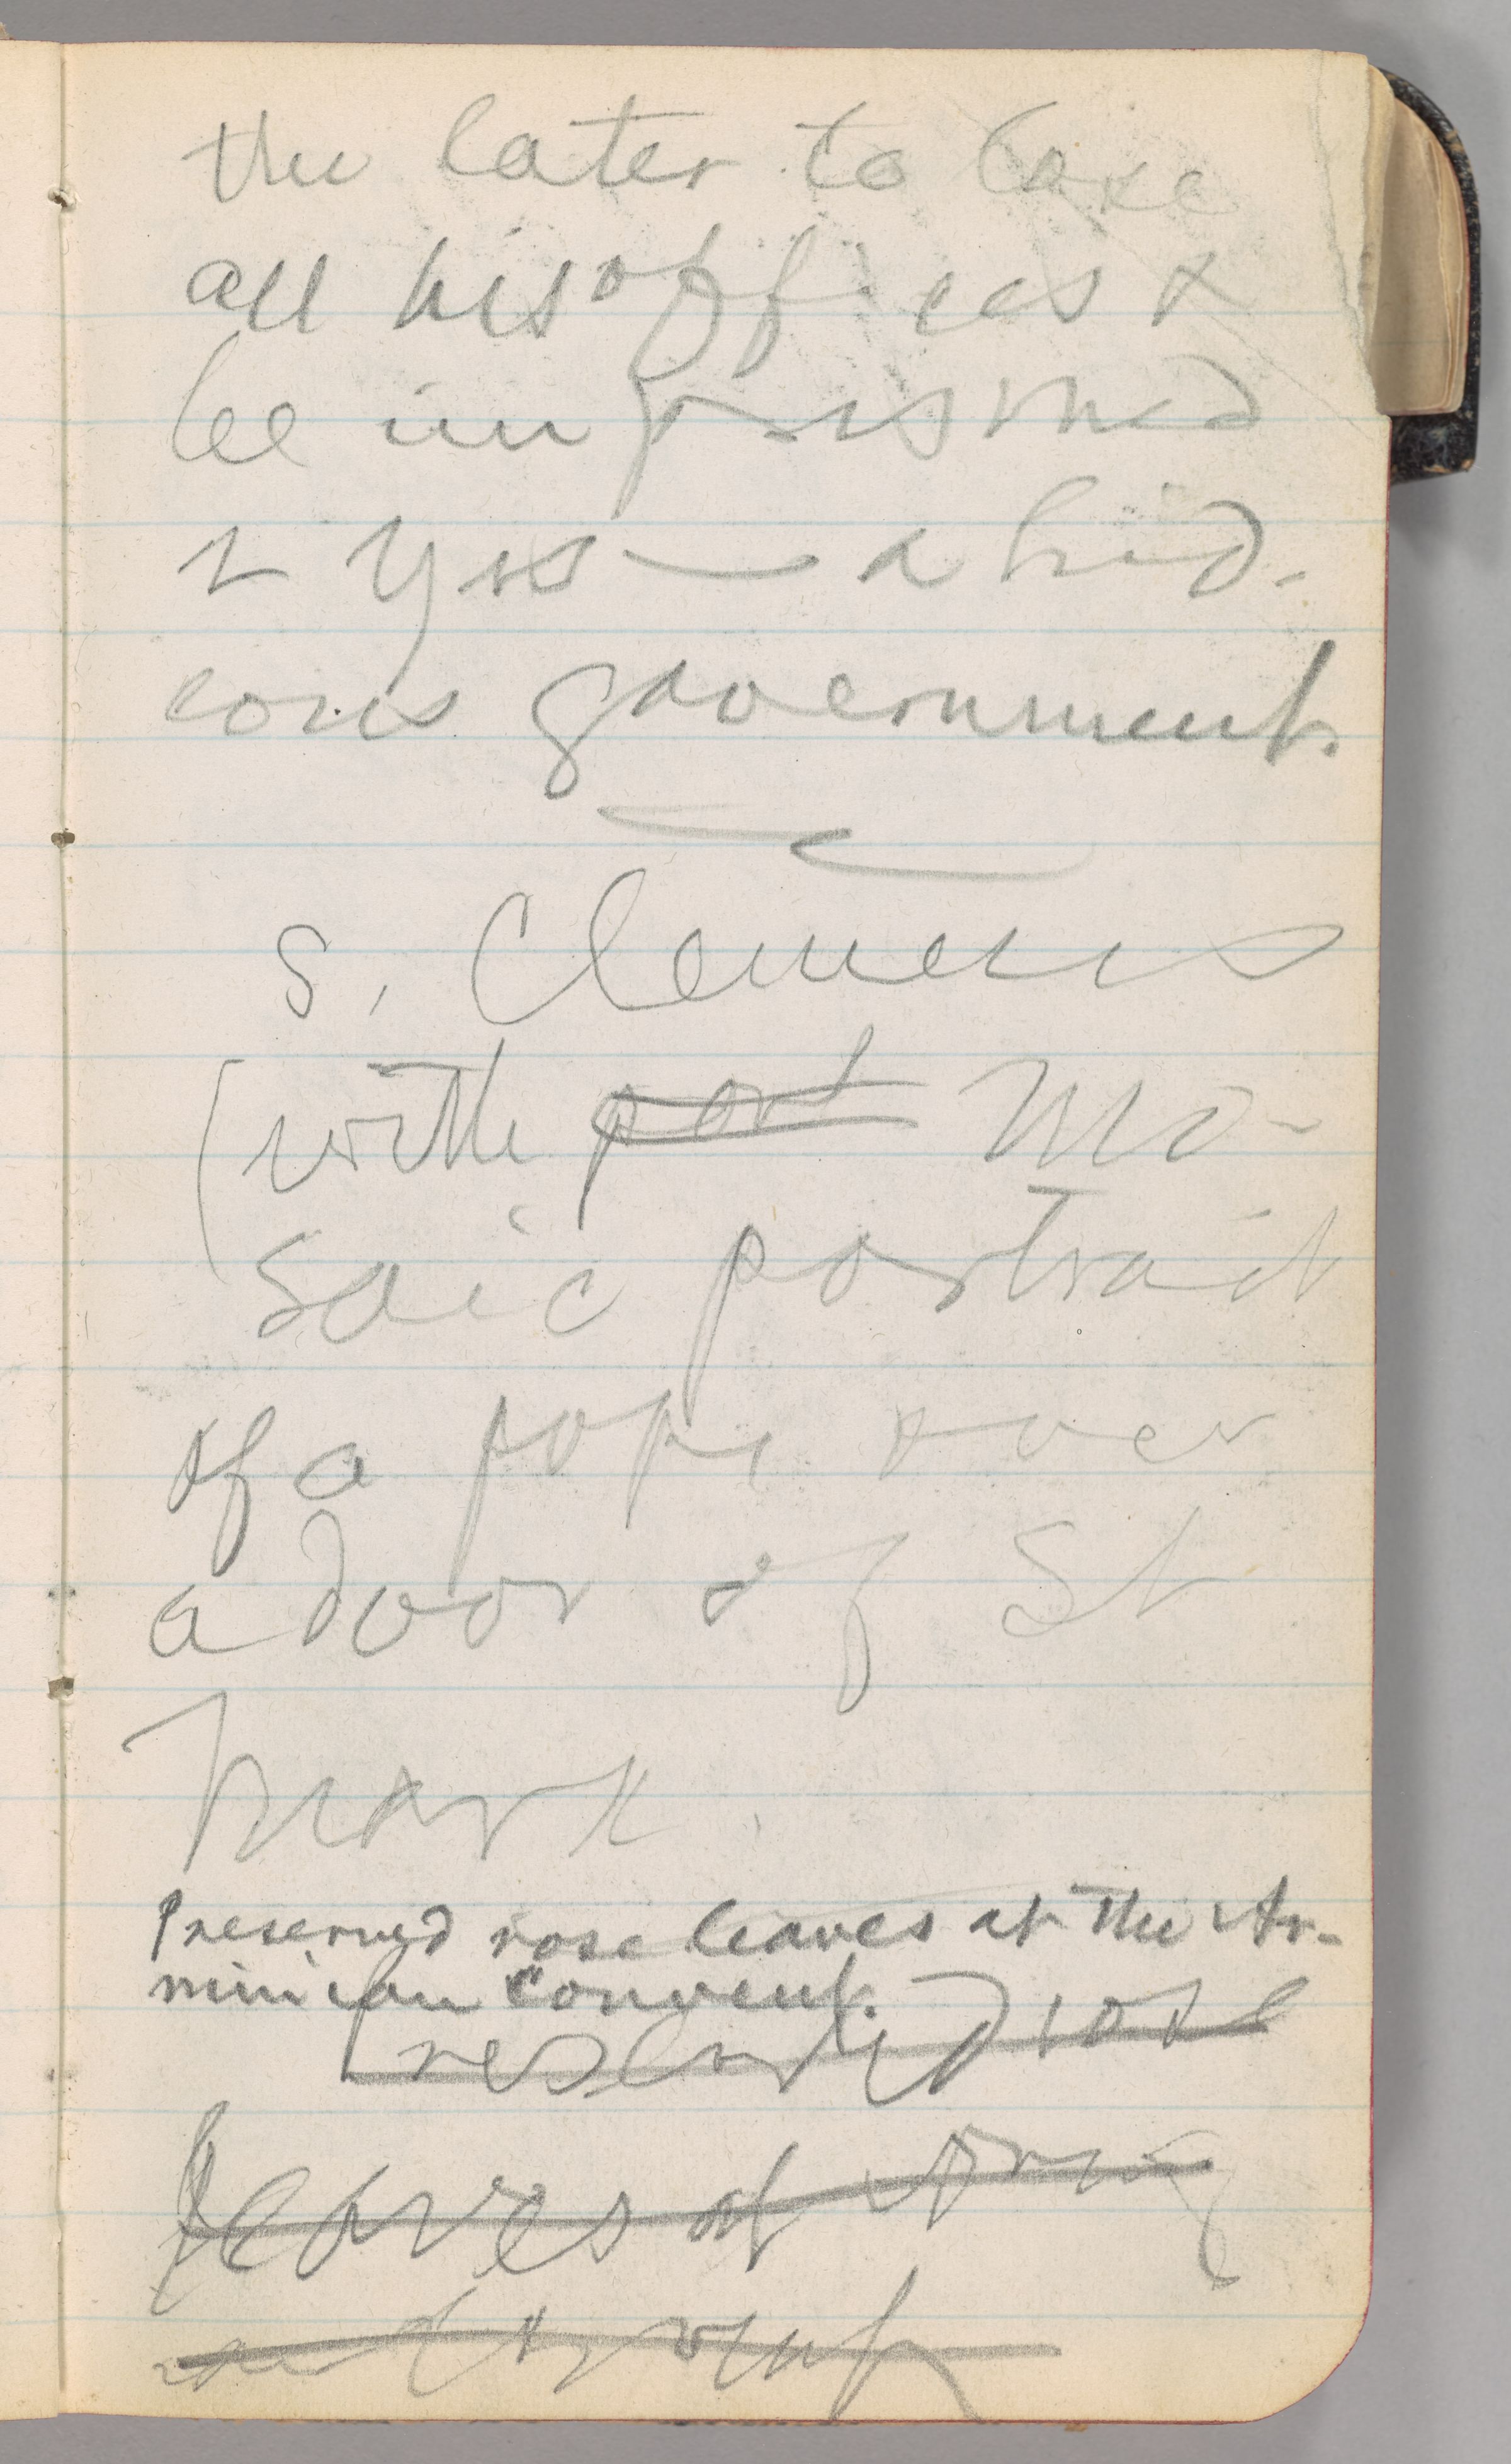 the later to lose
all his offices &
be imprisoned
2 yrs — a hid-
eous government.
S. Clemens
(with port mo-
saic portrait
of a pope over
a door of St
Mark.
Preserved rose leaves at the Ar-
minian convent.
Preserved rose
leaves at Armin
ian Convent